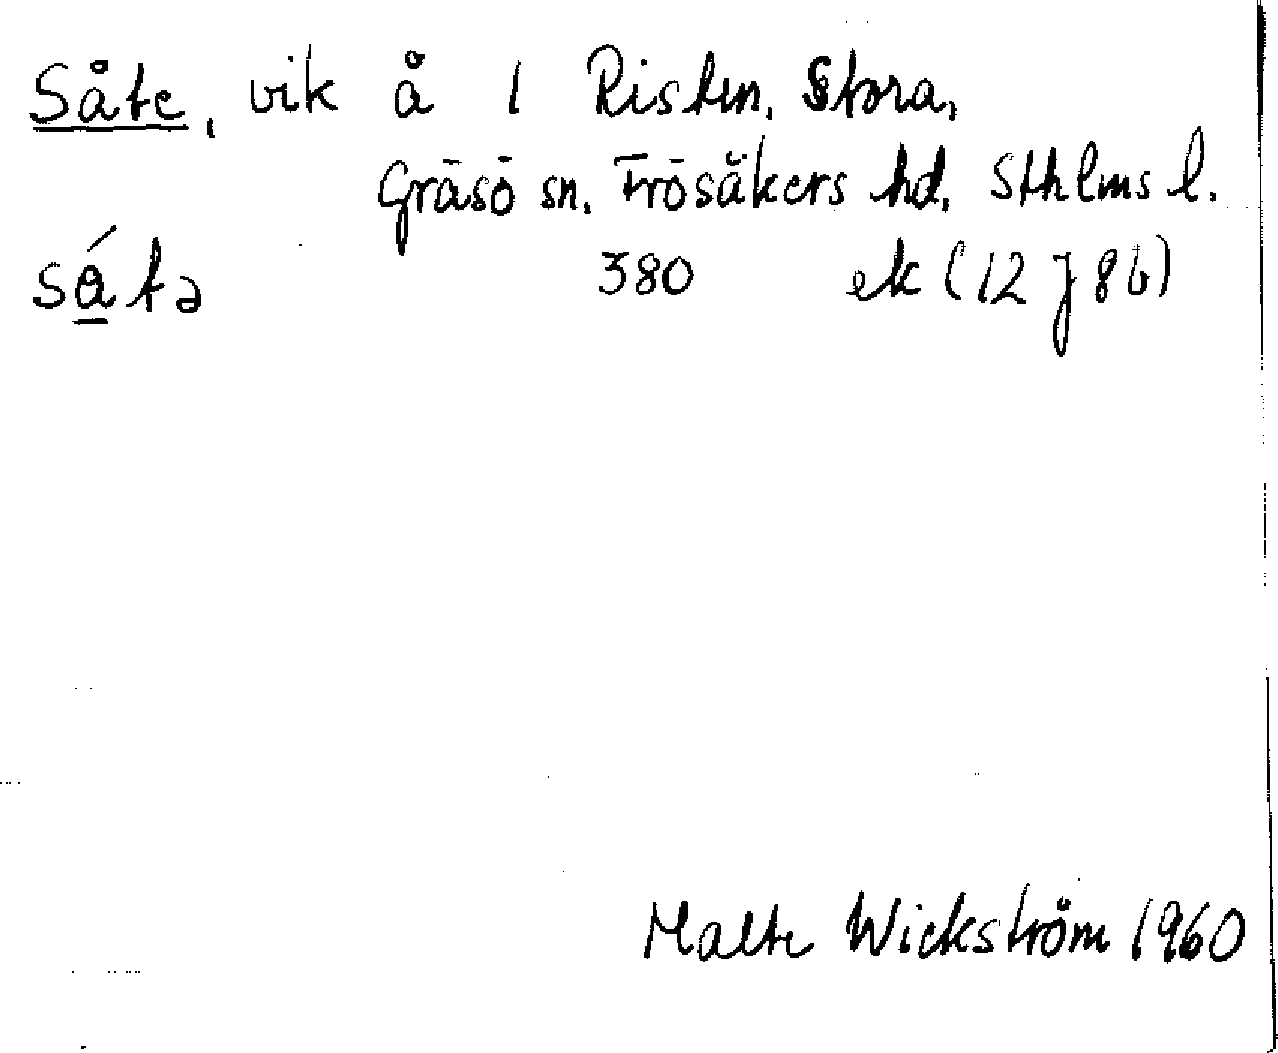 Såte, vik å 1 Risten, Stora,
Gräsö sn. Frösåkers hd. Sthlms l.
sǻtə 380 ek (12 J 8b)
Malte Wickström 1960